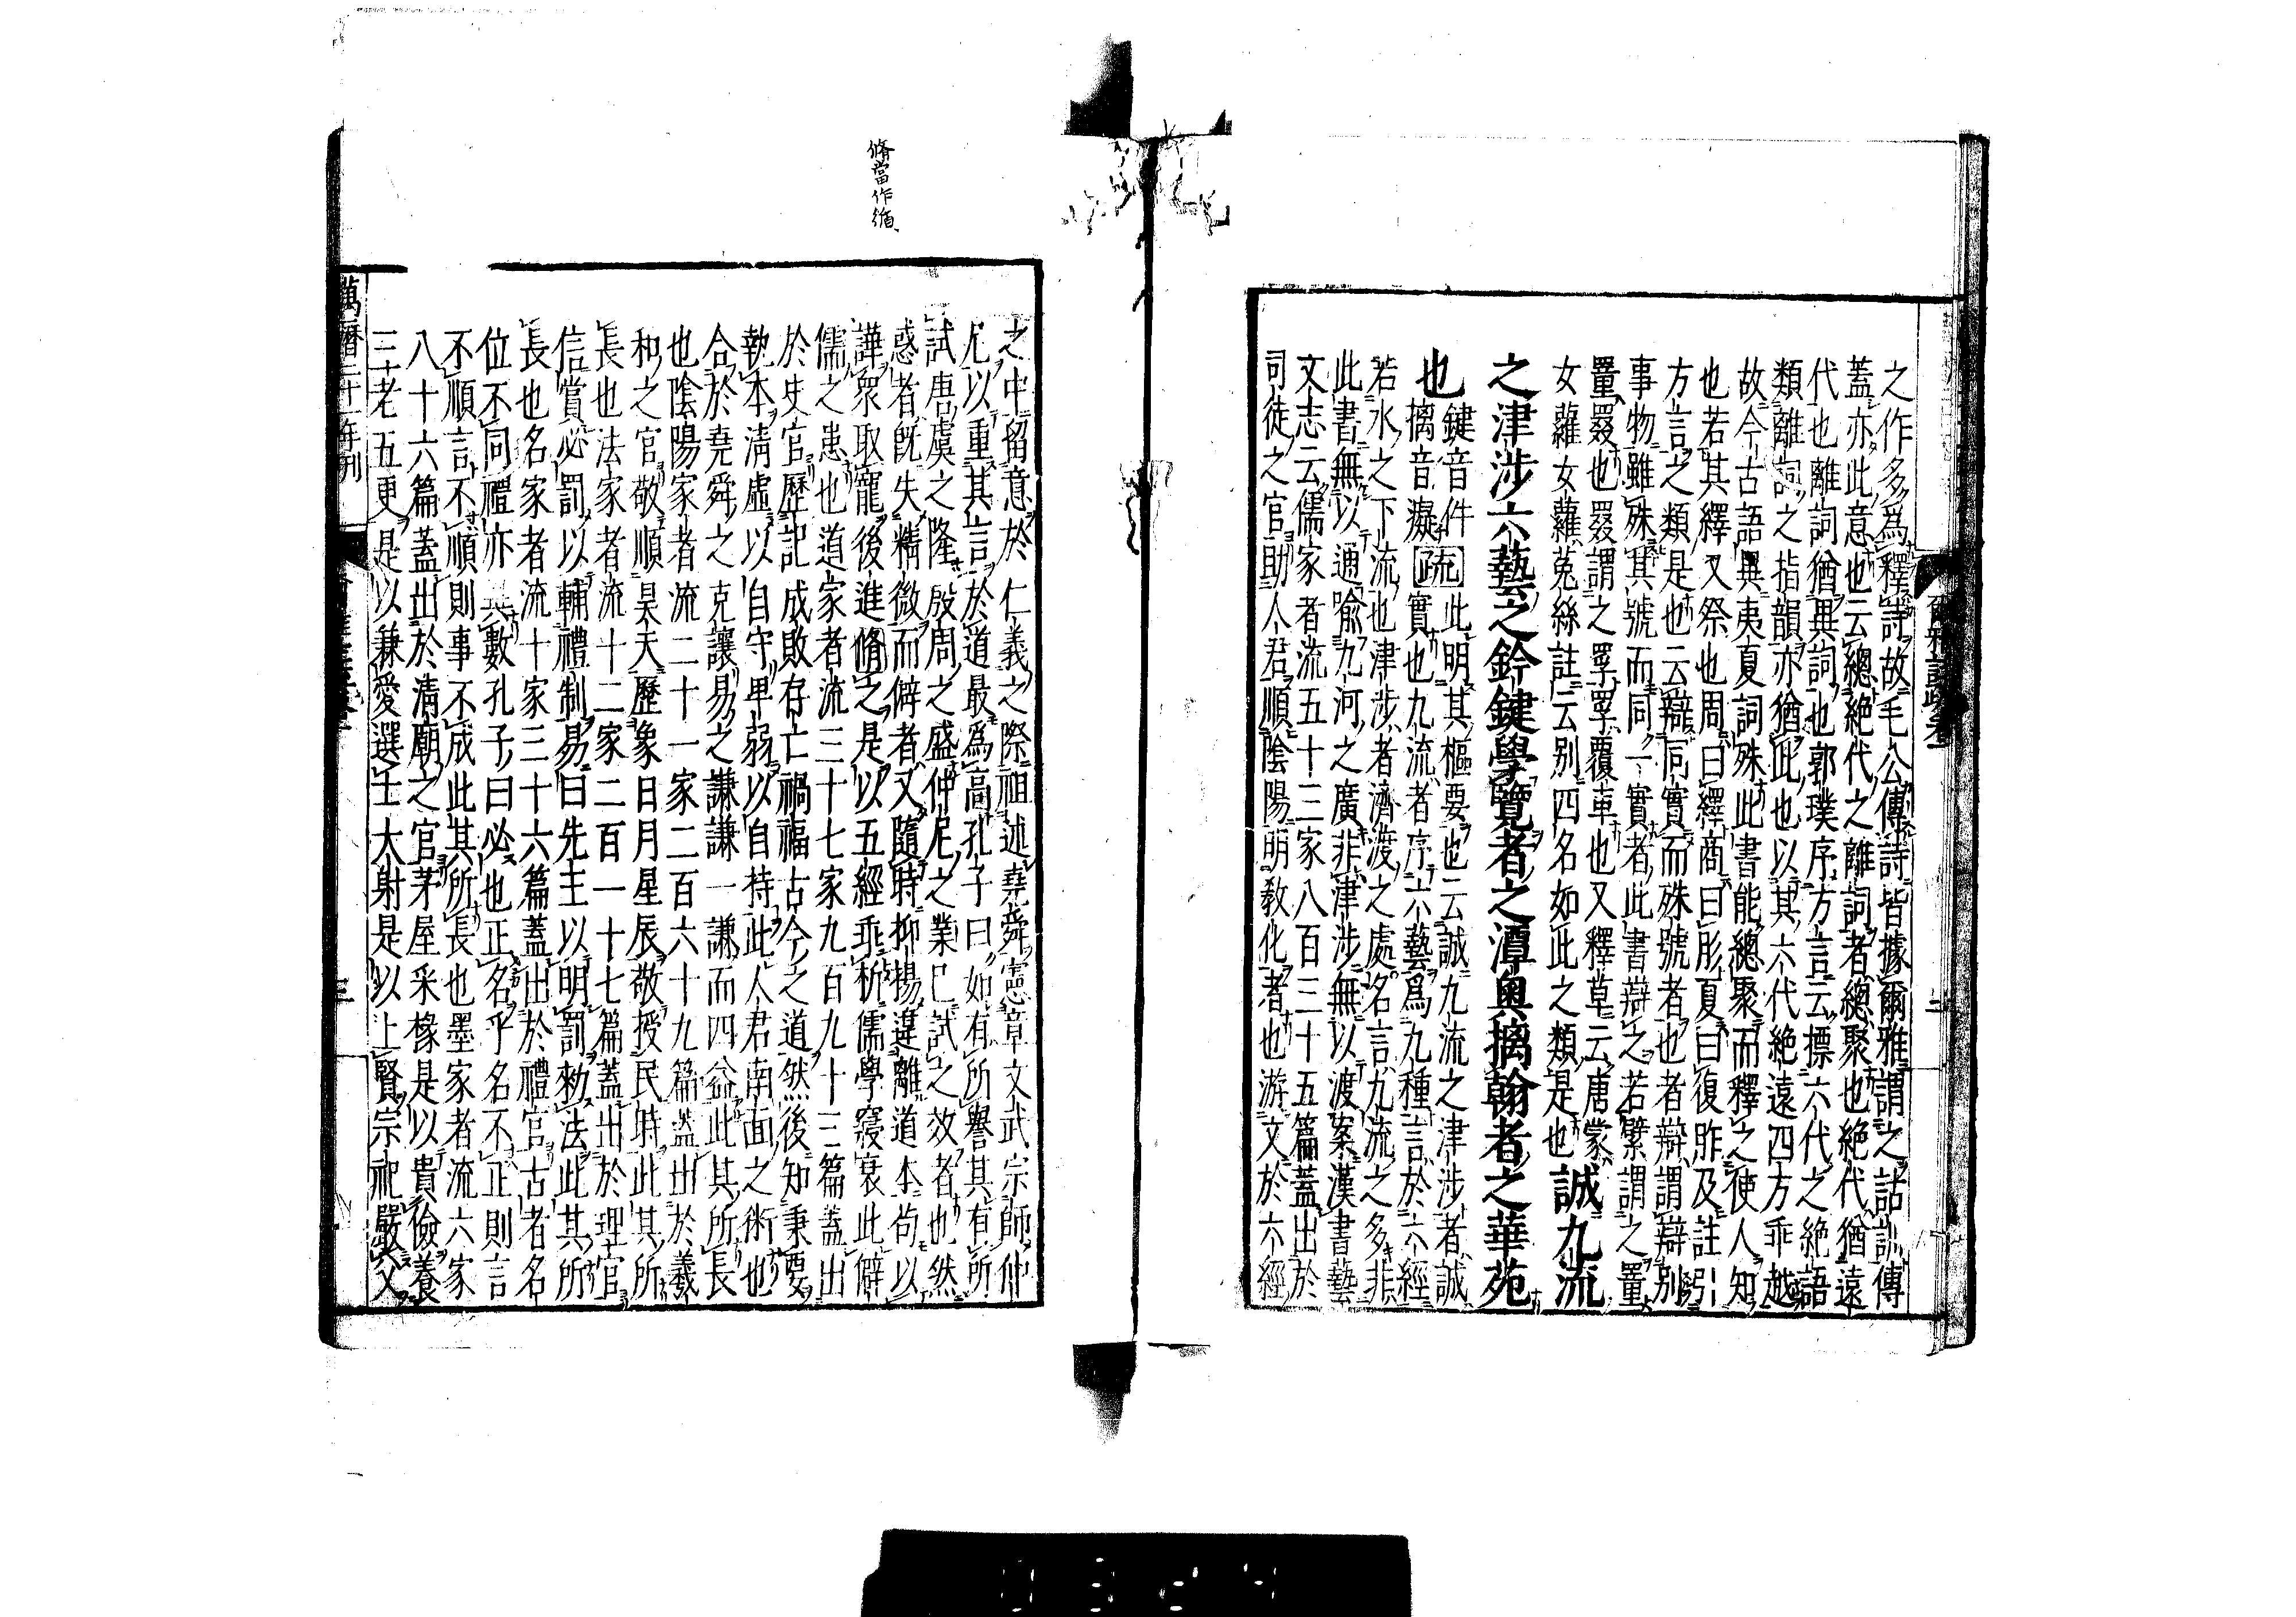 之作多爲釋詩故毛公傳詩皆據爾雅謂之詁訓傳
蓋亦此意也云總絶代之離詞者總聚也絶代猶遠
代也離詞猶異詞也郭璞序方言云摽六代之絶語
類離詞之指韻亦猶此也以其六代絶遠四方乖越
故今古語異夷夏詞殊此書能總聚而釋之使人知
也若其繹又祭也周曰繹商曰肜夏曰復胙及註
方言之類是也云辯同實而殊號者也者辯謂辯別
事物雖殊其號而同一實者此書辯之若蘩謂之罿
罿罬也罬謂之罦罦覆車也又釋草云唐蒙
女蘿女蘿菟絲註云別四名如此之類是也誠九流
之津涉六藝之鈐鍵學覽者之潭奧摛翰者之華苑
也
鍵音件
摛音癡
疏
此明其樞要也云誠九流之津涉者誠
實也九流者序六藝爲九種言於六經
若水之下流也津涉者濟渡之處名言九流之多非
此書無以通喻九河之廣非津涉無以渡案漢書藝
文志云儒家者流五十三家八百三十五篇蓋出於
司徒之官助人君順陰陽明教化者也游文於六經
爾雅註疏卷一
二
脩當作循
之中留意於仁義之際祖述堯舜憲章文武宗師仲
尼以重其言於道最爲高孔子曰如有所譽其有所
試唐虞之隆殷周之盛仲尼之業已試之效者也然
惑者旣失精微而僻者又隨時抑揚違離道本苟以
譁衆取寵後進脩之是以五經乖析儒學寖衰此僻
儒之患也道家者流三十七家九百九十三篇蓋出
於史官歷記成敗存亡禍福古今之道然後知秉要
執本清虛以自守卑弱以自持此人君南面之術也
合於堯舜之克讓易之謙謙一謙而四益此其所長
也陰陽家者流二十一家二百六十九篇蓋出於羲
和之官敬順昊天歷象日月星辰敬授民時此其所
長也法家者流十二家二百一十七篇蓋出於理官
信賞必罰以輔禮制易曰先王以明罰勑法此其所
長也名家者流十家三十六篇蓋出於禮官古者名
位不同禮亦異數孔子曰必也正名乎名不正則言
不順言不順則事不成此其所長也墨家者流六家
八十六篇蓋出於清廟之官茅屋采椽是以貴儉養
三老五更是以兼愛選士大射是以上賢宗祀嚴父
萬曆二十一年刊
三